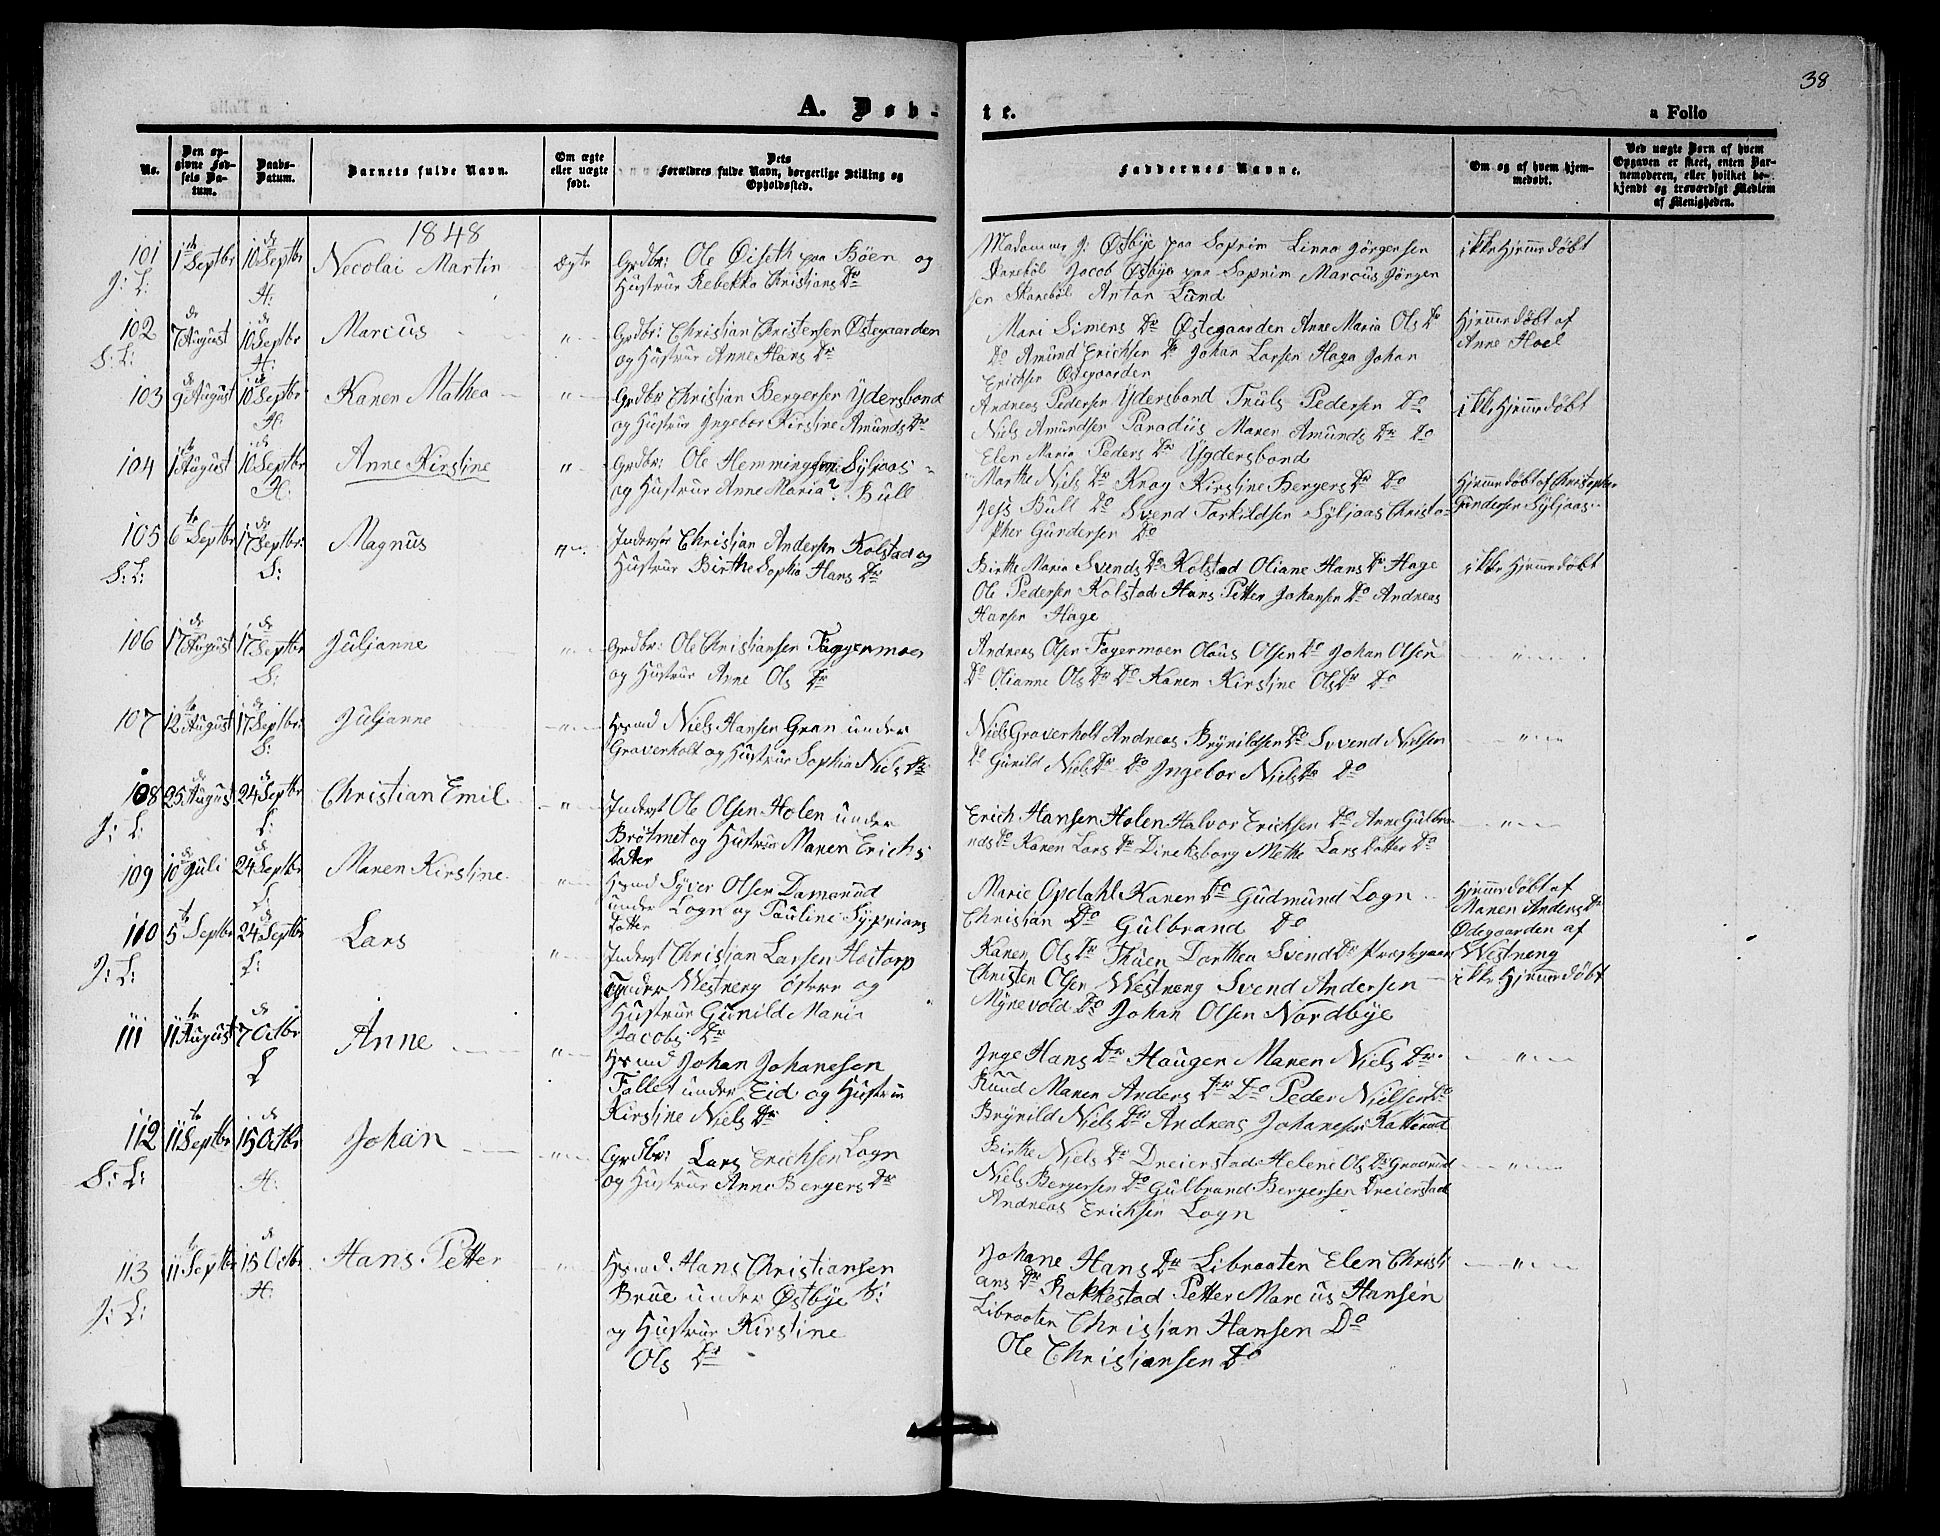 38
A. Døb-
te.
a Folio
No.
Den op-
givne Fød-
sels Da-
tum.
Daabs-
Datum.
Barnets fulde Navn.
Om ægte
eller uægte
født.
Dets
Forældres fulde Navn, borgerlige Stilling og
Opholdssted.
Faddernes Navne.
Om og af hvem hjem-
medøbt.
Ved uægte Børn af hvem
Opgaven er skeet, enten Bar-
nemoderen, eller hvilket be-
kjendt og troværdigt Medlem
af Menigheden.
1848
101
J: L:
1ste Septbr
10de Septbr
H:
Necolai Martin
Ægte
Grdbr: Ole Øiseth paa Böen og
Hustrue Rebekka Christians Dr
Madamme J: Østbye paa Soprim Linna Jörgensen
Skareböl Jacob Østbye paa Soprim Marcus Jörgen
sen Skareböl Anton Lund
ikke Hjemmedøbt
102
S: L:
7de August
10de Septbr
H:
Marcus
"
Grdbr: Christian Christensen Østegaarden
og Hustrue Anne Hans Dr
Mari Simens Dr Østegaarden Anne Maria Ols Dr
Do Amund Erichsen Do Johan Larsen Haga Johan
Erichsen Østegaarden
Hjemmedøbt af
Anne Hoel
103
9de August
10de Septbr
H:
Karen Mathea
"
Grdbr Christian Bergersen Ydersbond
og Hustrue Ingebor Kirstine Amunds Dr
Andreas Pedersen Ydersbond Truls Pedersen Do
Niels Amundsen Paradiis Maren Amunds Dr Do
Elen Maria Peders Dr Ygdersbond
ikke Hjemmedøbt
104
1ste August
10de Septbr
H:
Anne Kirstine
"
Grdbr: Ole Hemmingsen Syljaas
og Hustrue Anne Maria? Bull
Marthe Niels Dr Krog Kirstine Bergers Dr Do
Jess Bull Do Svend Torkildsen Syljaas Christo-
pher Gundersen Do
Hjemmedøbt af Christopher
Gundersen Syljaas
105
S: L:
6te Septbr
17de Septbr
S:
Magnus
"
Inderst Christian Andersen Kolstad og
Hustrue Birthe Sophia Hans Dr
Birthe Maria Svends Dr Kolstad Oliane Hans Dr Hage
Ole Pedersen Kolstad Hans Petter Johansen Do Andreas
Hansen Hage
ikke Hjemmedøbt
106
17de August
17de Septbr
S:
Juljanne
"
Grdbr: Ole Christiansen Faggermoen
og Hustrue Anne Ols Dr
Andreas Olsen Fagermoen Olaus Olsen Do Johan Olsen
Do Olianne Ols Dr Do Karen Kirstine Ols Dr Do
"
107
12te August
17de Septbr
S:
Juljanne
"
Hsmd Niels Hansen Gran under
Graverholt og Hustrue Sophia Niels Dr
Niels Graverholt Andreas Brynildsen Do Svend Nielsen
Do Gunild Niels Dr Do Ingebor Niels Dr Do
"
108
J: L:
25de August
24de Septbr
L:
Christian Emil
"
Inderst Ole Olsen Holen under
Brötmet og Hustrue Maren Erichs
Datter
Erich Hansen Holen Halvor Erichsen Do Anne Gulbra-
nds Dr Karen Lars Dr Direksborg Mette Lars Datter Do
"
109
10de Juli
24de Septbr
L:
Maren Kirstine
"
Hsmd Syver Olsen Damerud
under Logn og Pauline Syprians
Datter
Marie Opdahl Karen Do Gudmund Logn
Christian Do Gulbrand Do
Hjemmedøbt af
Maren Anders Dr
Ødegaarden af
Westneng
110
J: L:
5te Septbr
24de Septbr
L:
Lars
"
Inderst Christian Larsen Hoitorp
under Westneng østere og
Hustrue Gunild Maria
Jacobs Dr
Karen Ols Dr Thuen Dorthea Svends Dr Præstegaar
Christen Olsen Westneng Svend Andersen
Myrevold Do Johan Olsen Nordbye
ikke Hjemmedøbt
111
11te August
7de Octbr
L
Anne
"
Hsmd Johan Johanesen
Follet under Eid og Hustrue
Kirstine Niels Dr
Inge Hans Dr Haugen Maren Niels Dr
Ruud Maren Anders Dr Do Peder Nielsen Do
Brynild Niels Dr Andreas Johanesen Katterud
"
112
S: L:
11te Septbr
15de Octbr
H:
Johan
"
Grdbr: Lars Erichsen Logn
og Hustrue Anne Bergers Dr
Birthe Niels Dr Dreierstad Helene Ols Dr Graarud
Niels Bergersen Do Gulbrand Bergersen Dreierstad
Andreas Erichsen Logn
"
113
J: L:
11te Septbr
15de Octbr
H:
Hans Petter
"
Hsmd. Hans Christiansen
Brue under Østbye S:
og Hustrue Kirstine
Ols Dr
Johane Hans Dr Libraaten Elen Christi
ans Dr Rakkestad Petter Marcus Hansen
Libraaten Christian Hansen Do
Ole Christiansen Do
"